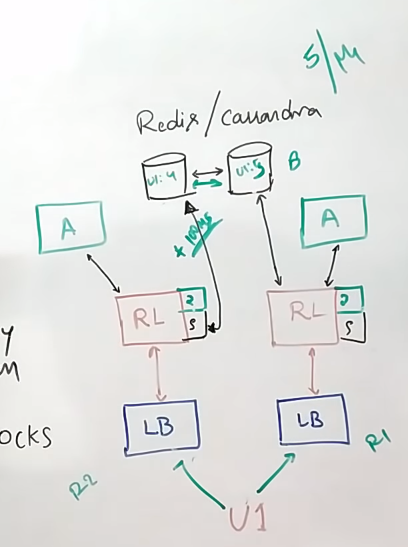 5/M
Redis/Cassandra
U1:4
U1:5
B
A
A
* 100MS
RL
2
5
RL
2
5
Y
M
LB
LB
OCKS
R1
R2
U1